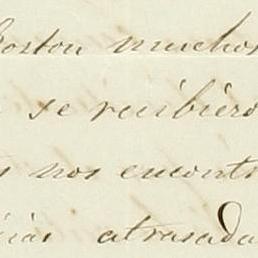 Boston muchos
se recibiero
s nos encontr
cias atrasada